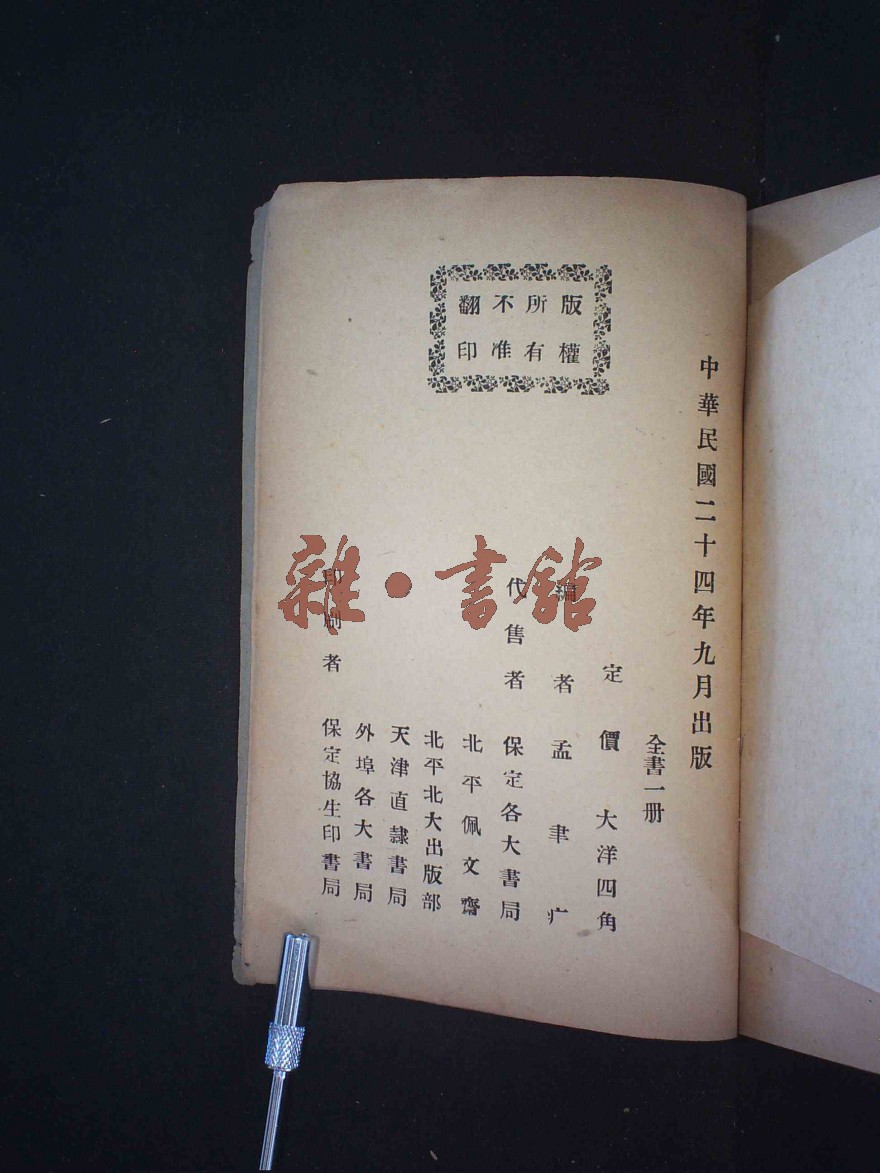 中華民國二十四年九月出版
全書一册
定價 大洋四角
編者 孟聿疒
代售者 保定各大書局
北平佩文齋
北平北大出版部
天津直隸書局
外埠各大書局
印刷者 保定協生印書局
版權
所有
不准
翻印
雜·書館